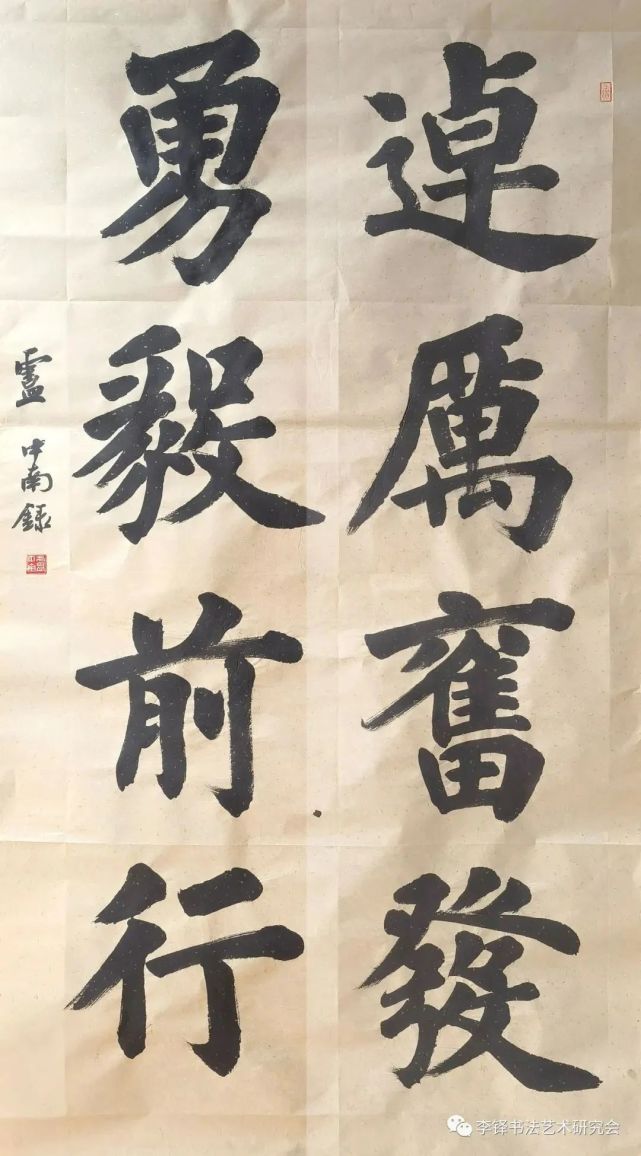 逴厲奮發
勇毅前行
盧中南錄
李铎书法艺术研究会